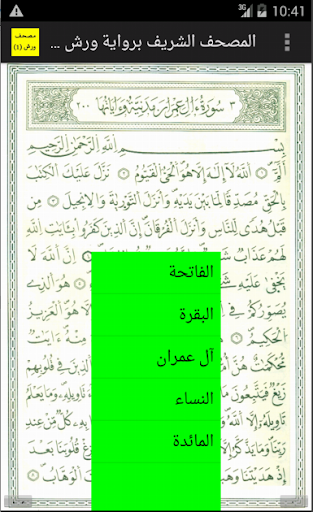 3G 10:41
مصحف
ورش (1)
المصحف الشريف برواية ورش ...
٣ سورة ءال عمران مدنية وءاياتها ٢٠٠
بسم الله الرحمن الرحيم
ألم الله لا إله إلا هو الحي القيوم نزل عليك الكتب
بالحق مصدقا لما بين يديه وأنزل التورية والإنجيل
من قبل هدى للناس وأنزل الفرقان إن الذين كفروا بءايت الله
لهم عذاب
يخفى عليه هو الذي
يصوركم هو العزيز
الحكيم
محكمت هن في قلوبهم
زيغ فيتبعون تأويله وما يعلم
تأويله إلا
من عند ربنا وما يذكر قلوبنا بعد
إذ هديتنا أنت الوهاب
الفاتحة
البقرة
آل عمران
النساء
المائدة